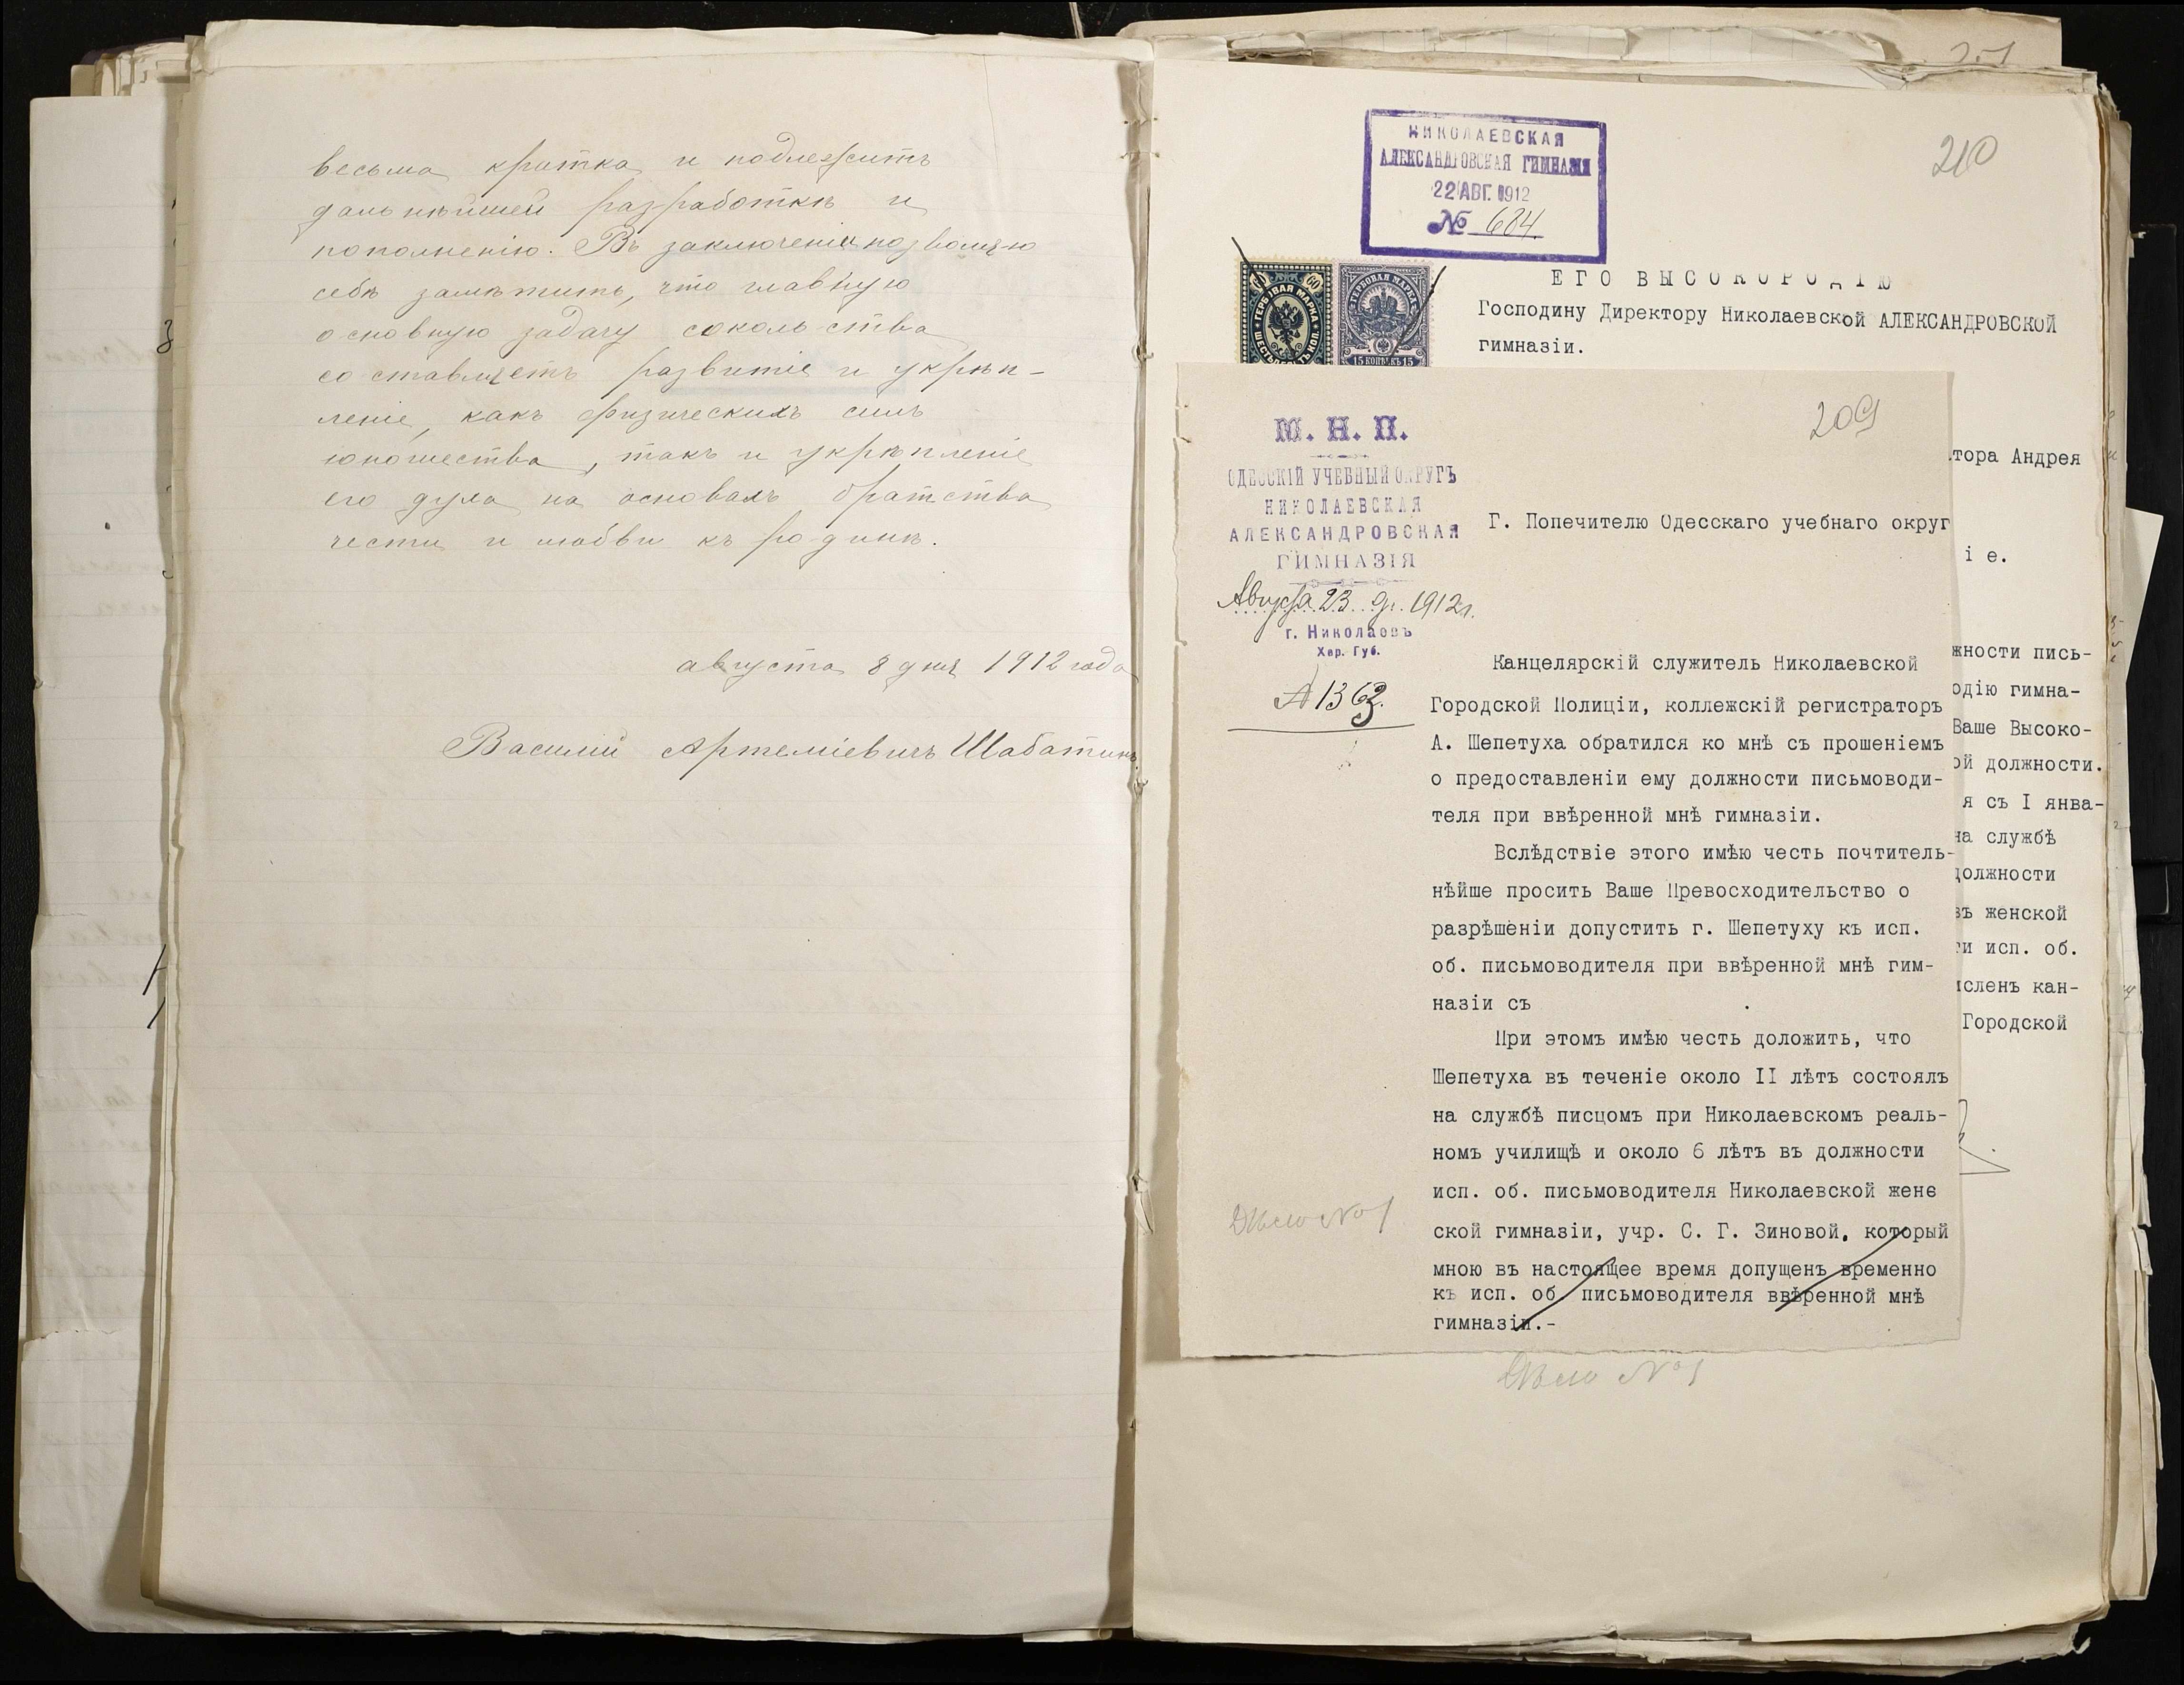 весьма кратка и подлежитъ
дальнѣйшей разработкѣ и
пополненію. Въ заключеніи позволяю
себѣ замѣтить, что главную
основную задачу сокольства
составляетъ развитіе и укрѣп-
леніе, какъ физическихъ силъ
юношества, такъ и укрѣпленіе
его духа на основахъ братства
чести и любви къ родинѣ.
августа 8 дня 1912 года
Василій Артеміевичъ Шабатинъ.
210
НИКОЛАЕВСКАЯ
АЛЕКСАНДРОВСКАЯ ГИМНАЗІЯ
22 АВГ. 1912
№ 684
60 60
ГЕРБОВАЯ МАРКА
ГЕРБОВАЯ МАРКА
15 КОПѢЕКЪ 15
ЕГО ВЫСОКОРОДІЮ
Господину Директору Николаевской АЛЕКСАНДРОВСКОЙ
гимназіи.
тора Андрея
іе.
жности пись-
одію гимна-
Ваше Высоко-
ой должности.
я съ I янва-
на службѣ
должности
въ женской
ти исп. об.
исленъ кан-
Городской
209
М. Н. П.
ОДЕССКІЙ УЧЕБНЫЙ ОКРУГЪ
НИКОЛАЕВСКАЯ
АЛЕКСАНДРОВСКАЯ
ГИМНАЗІЯ
Августа 23 д. 1912 г.
г. Николаевъ
Хер. Губ.
№ 1363.
Г. Попечителю Одесскаго учебнаго округ
Канцелярскій служитель Николаевской
Городской Полиціи, коллежскій регистраторъ
А. Шепетуха обратился ко мнѣ съ прошеніемъ
о предоставленіи ему должности письмоводи-
теля при ввѣренной мнѣ гимназіи.
Вслѣдствіе этого имѣю честь почтитель-
нѣйше просить Ваше Превосходительство о
разрѣшеніи допустить г. Шепетуху къ исп.
об. письмоводителя при ввѣренной мнѣ гим-
назіи съ .
При этомъ имѣю честь доложить, что
Шепетуха въ теченіе около II лѣтъ состоялъ
на службѣ писцомъ при Николаевскомъ реаль-
номъ училищѣ и около 6 лѣтъ въ должности
исп. об. письмоводителя Николаевской женс
ской гимназіи, учр. С. Г. Зиновой, который
мною въ настоящее время допущенъ временно
къ исп. об. письмоводителя ввѣренной мнѣ
гимназіи.-
Дѣло №1
Дѣло №1